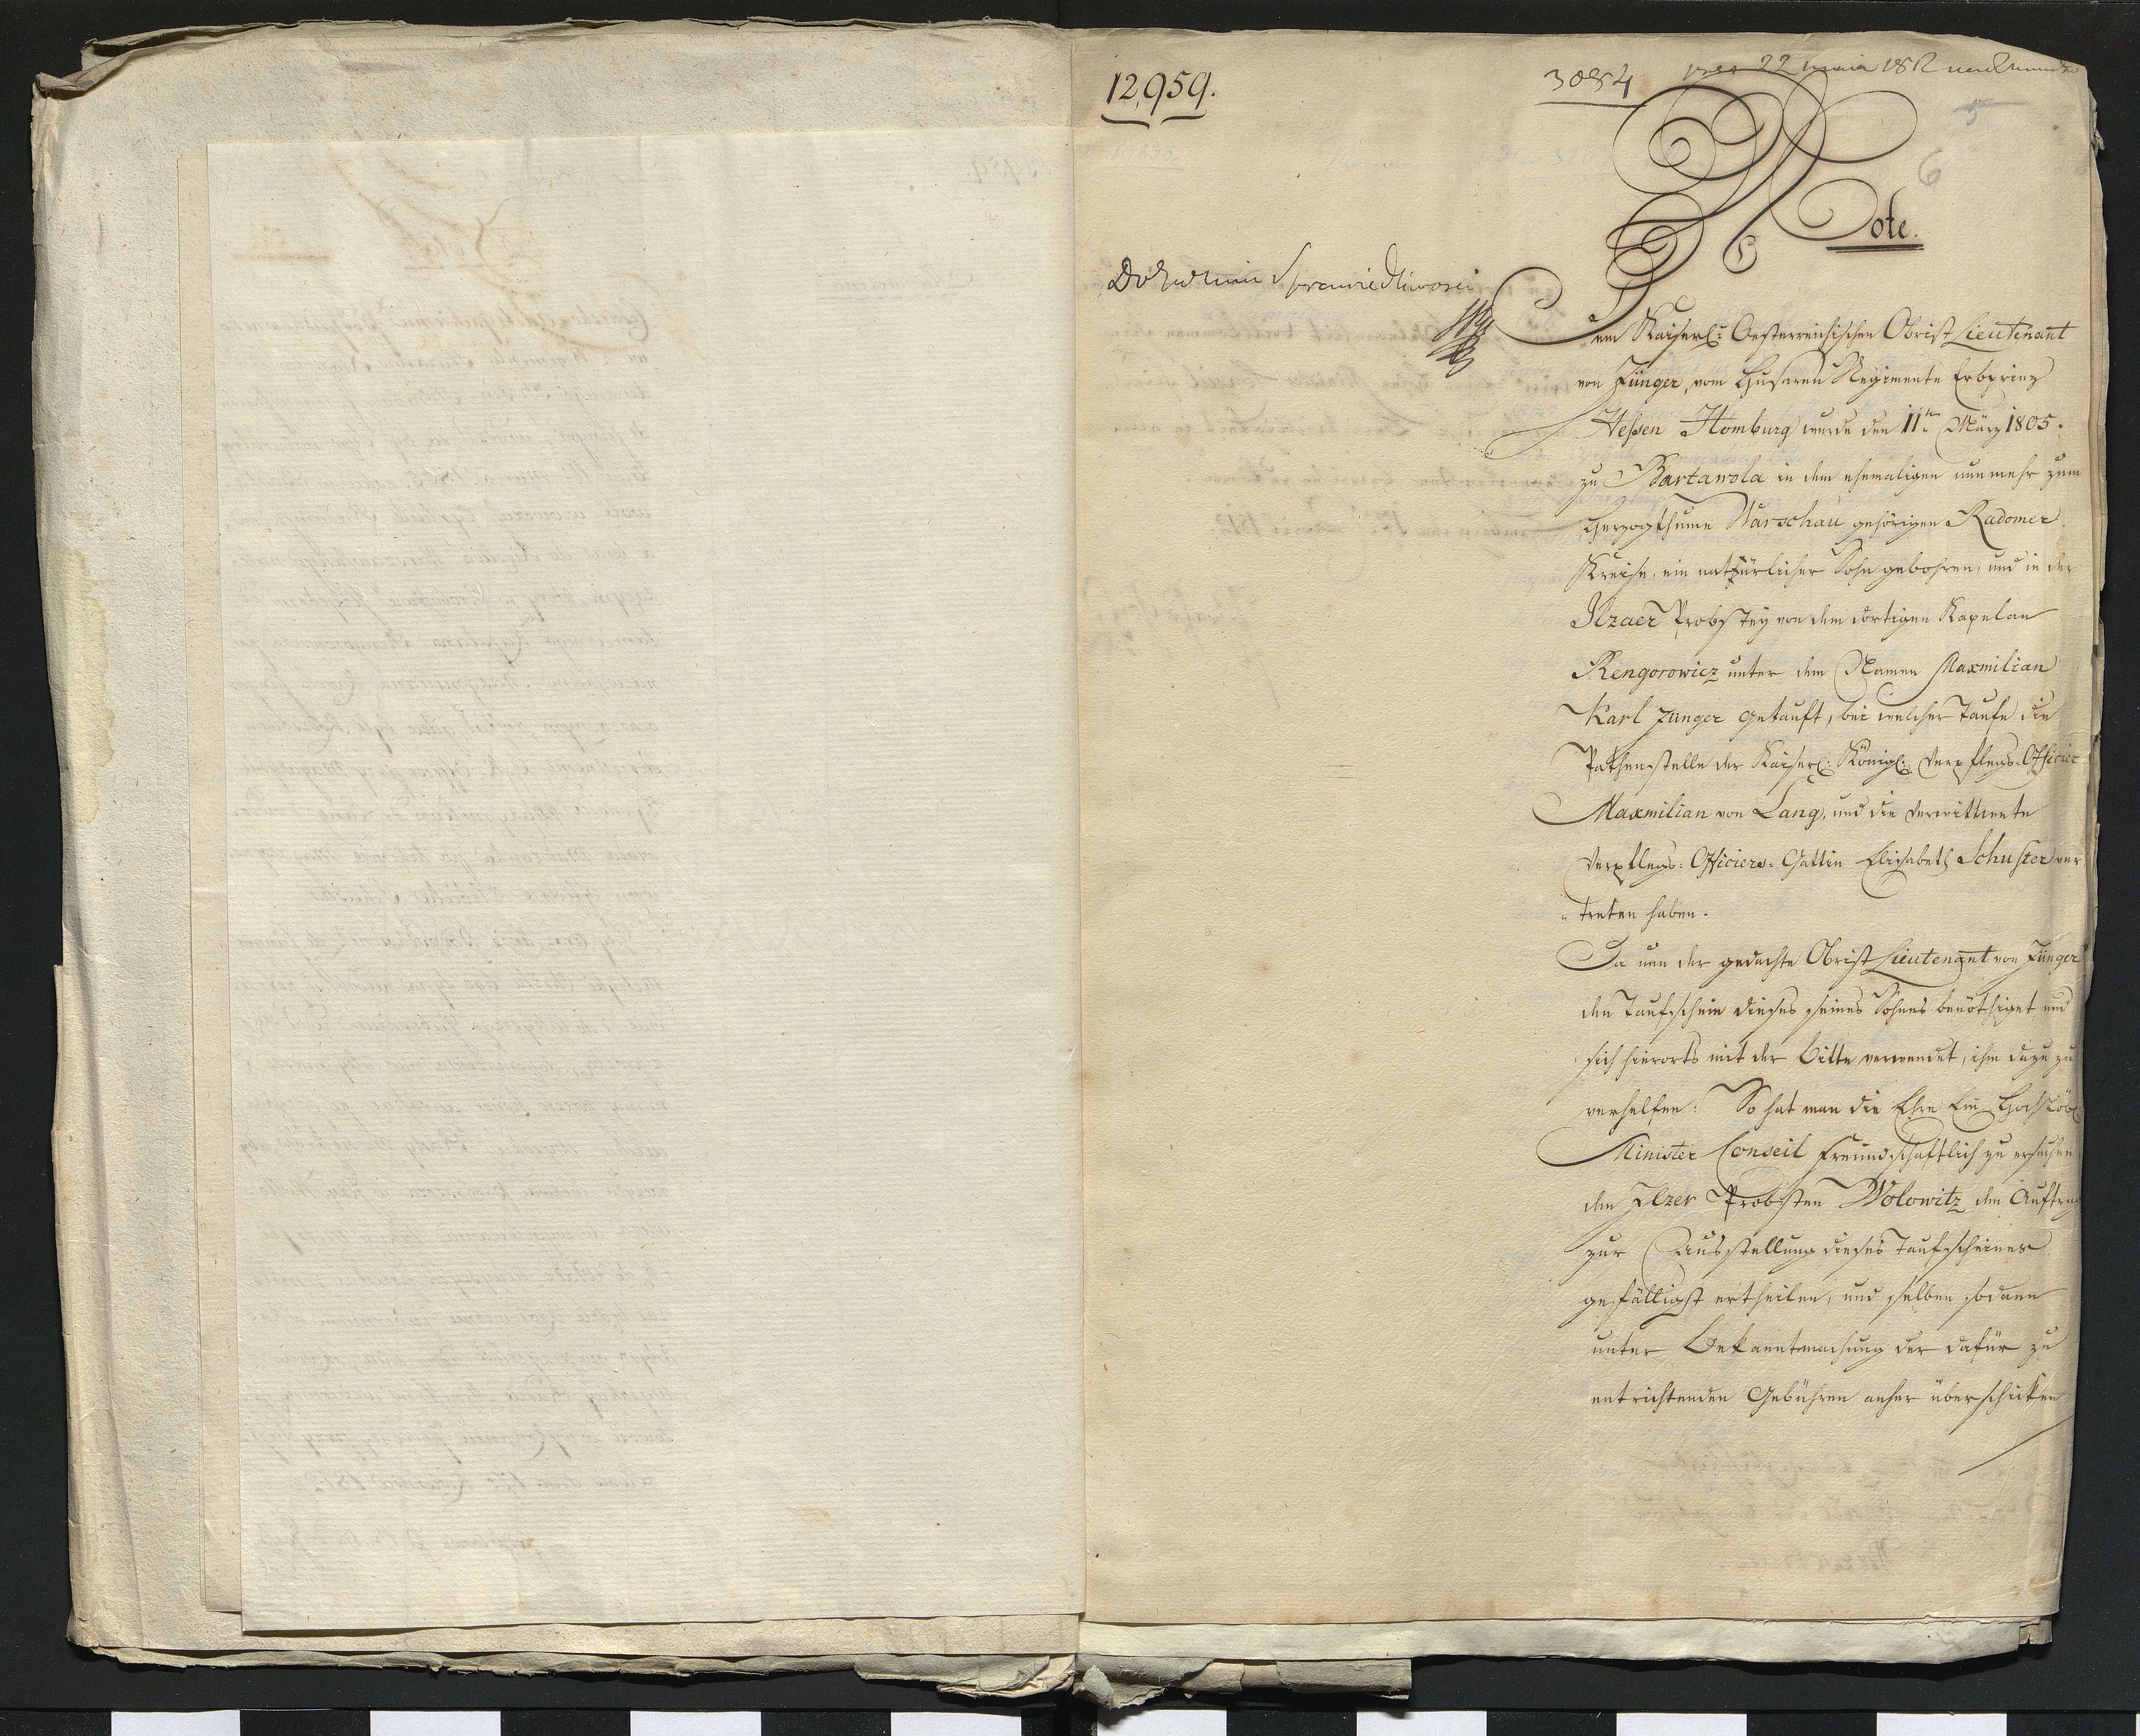 12,959.
3084
22 maia 1812
5
6
Note.
Do Wo Min Sprawiedliwosci
Dem Kaiserl: Oesterreichischen Obrist Lieutenant
von Jünger, vom Husaren Regimente Erbprinz
Hessen Homburg wurde den 11ten März 1805.
zu Bartawola in dem ehemaligen nunmehr zum
Herzogthume Warschau gehörigen Radomer
Kreise, ein natürlicher Sohn gebohren, und in der
Ilzaer Probstey von dem dortigen Kapelan
Rengorowicz unter dem Namen Maxmilian
Karl Jünger getauft, bei welcher Taufe die
Pathenstelle der Kaiserl: Königl: Verpflegs-Officier
Maxmilian von Lang, und die verwittwete
Verpflegs-Officiers-Gattin Elisabeth Schuster ver
"treten haben.
Da nun der gedachte Obrist Lieutenant von Jünger
den Taufschein dieses seines Sohnes benöthiget und
sich hierorts mit der Bitte verwendet, ihm dazu zu
verhelfen: So hat man die Ehre Ein Hochlöbl
Minister Conseil freundschaftlich zu ersuchen
den Ilzer Probsten Wolowitz den Auftrag
zur Ausstellung dieses Taufscheines
gefälligst ertheilen, und selben sodann
unter Bekanntmachung der dafür zu
entrichtenden Gebühren anher überschicken